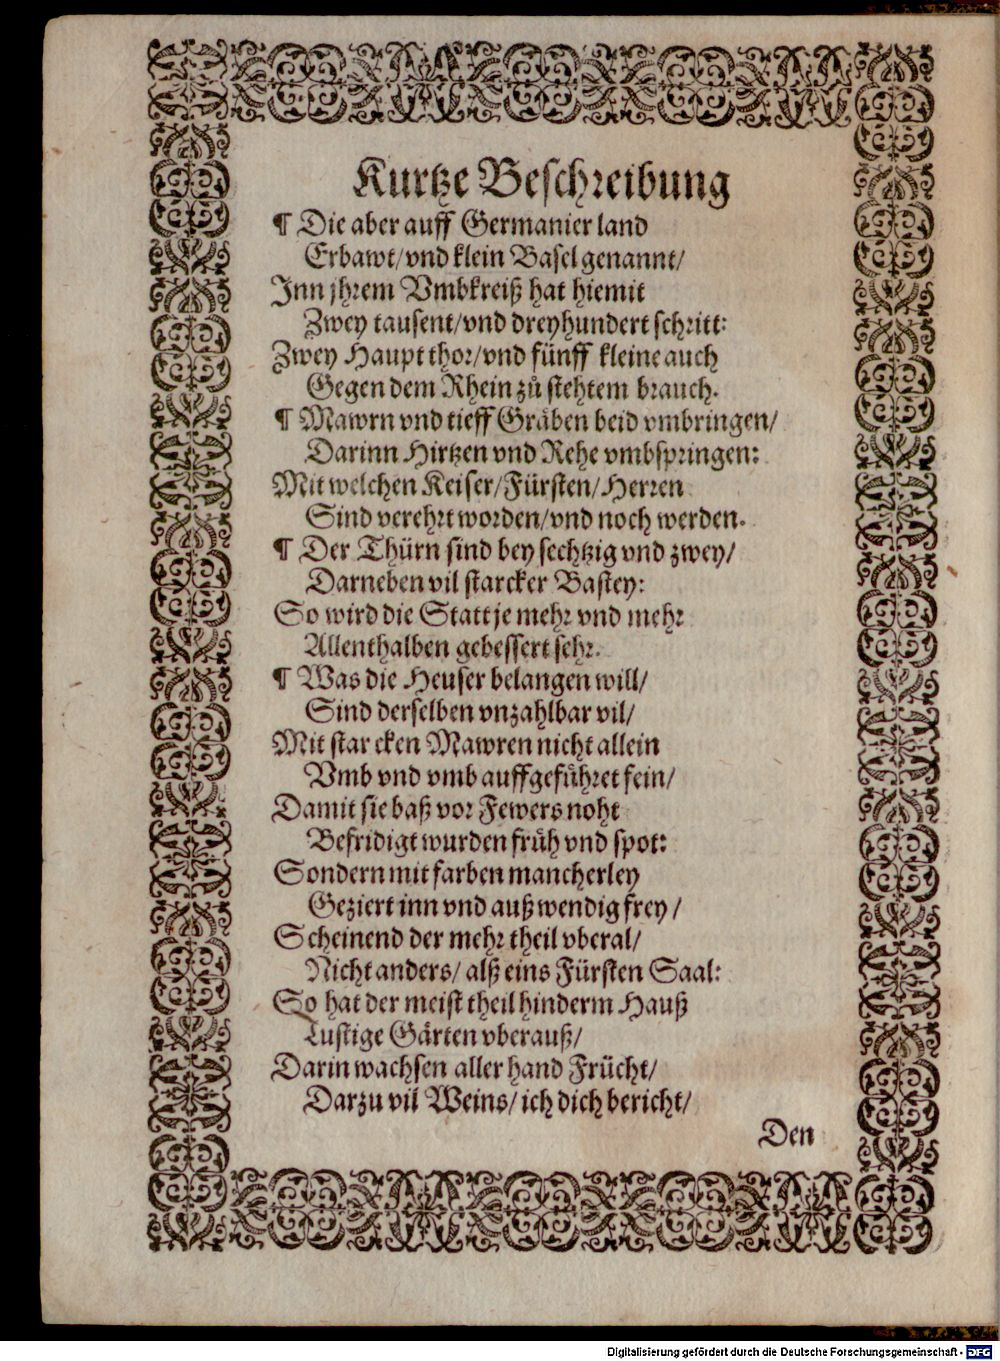 Kurtze Beschreibung
¶ Die aber auff Germanier land
Erbawt/vnd klein Basel genannt/
Inn jhrem Vmbkreiß hat hiemit
Zwey tausent/vnd dreyhundert schritt:
Zwey Haupt thor/vnd fünff kleine auch
Gegen dem Rhein zů stehtem brauch.
¶ Mawrn vnd tieff Gräben beid vmbringen/
Darinn Hirtzen vnd Rehe vmbspringen:
Mit welchen Keiser/Fürsten/Herren
Sind verehrt worden/vnd noch werden.
¶ Der Thürn sind bey sechtzig vnd zwey/
Darneben vil starcker Bastey:
So wird die Statt je mehr vnd mehr
Allenthalben gebessert sehr.
¶ Was die Heuser belangen will/
Sind derselben vnzahlbar vil/
Mit star cken Mawren nicht allein
Vmb vnd vmb auffgeführet fein/
Damit sie baß vor Fewers noht
Befridigt wurden früh vnd spot:
Sondern mit farben mancherley
Geziert inn vnd außwendig frey/
Scheinend der mehr theil vberal/
Nicht anders/ alß eins Fürsten Saal:
So hat der meist theil hinderm Hauß
Lustige Gärten vberauß/
Darin wachsen aller hand Frücht/
Darzu vil Weins/ ich dich bericht/
Den
Digitalisierung gefördert durch die Deutsche Forschungsgemeinschaft - DFG